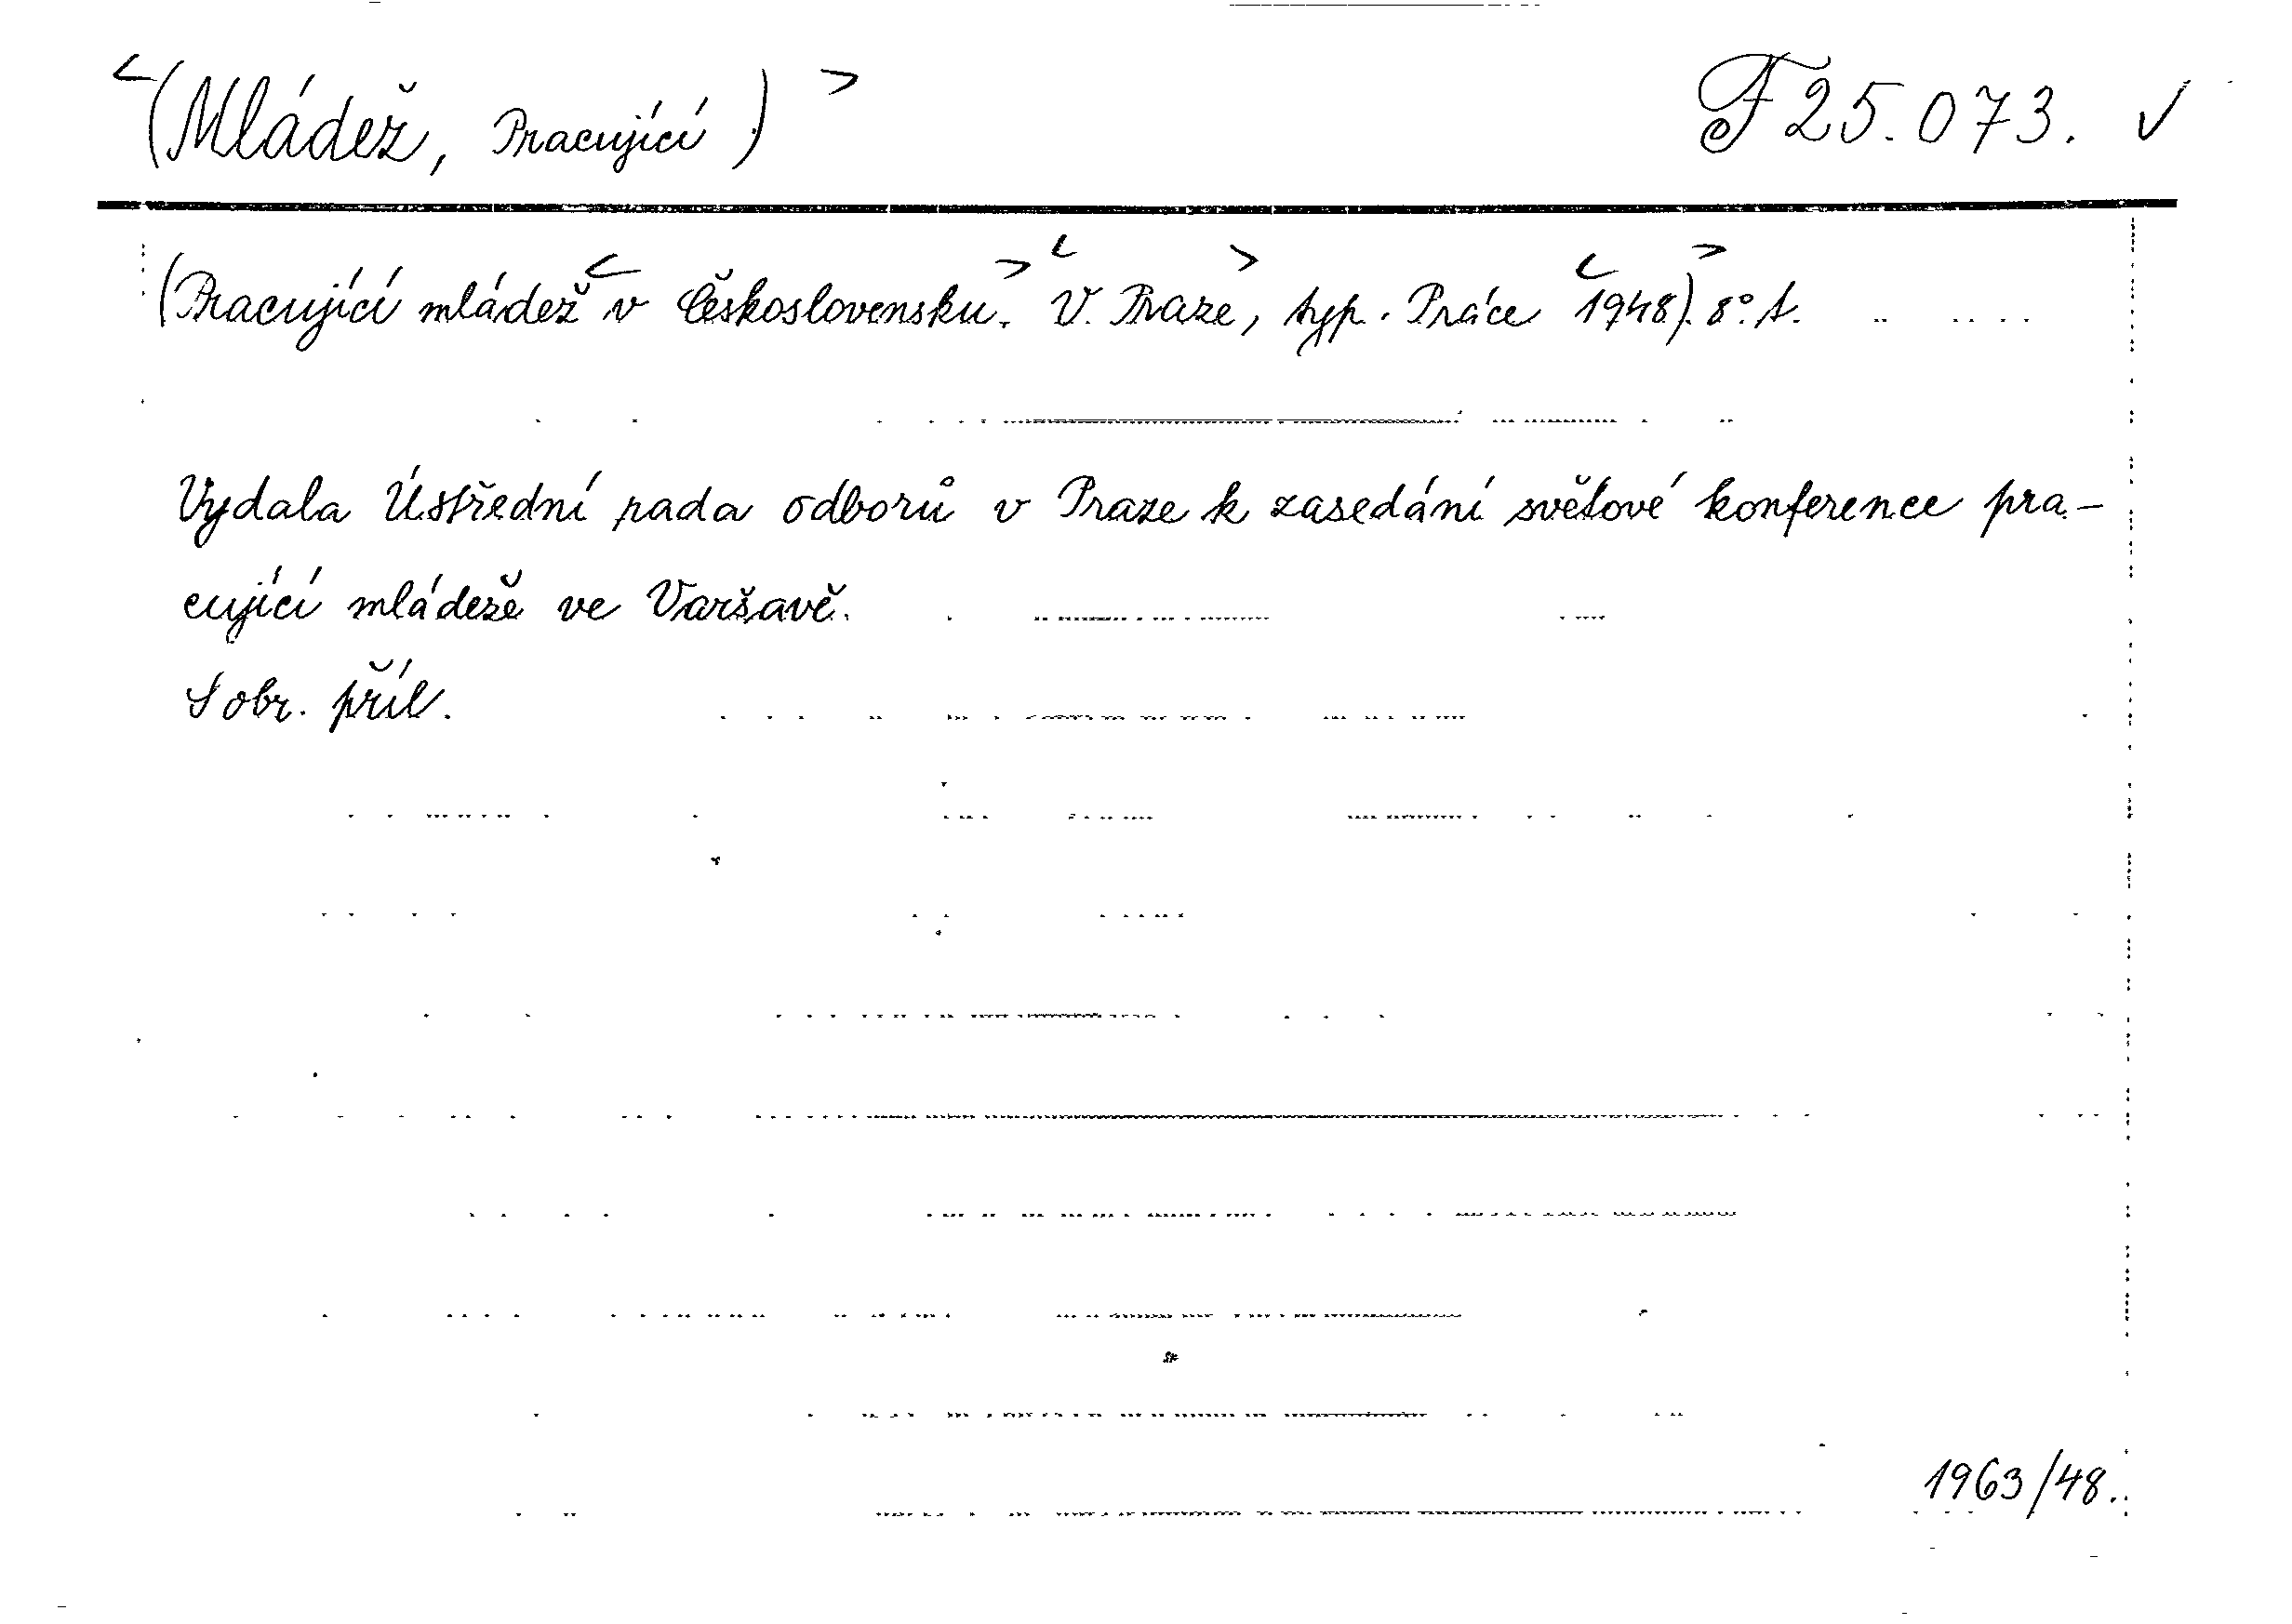 <(Mládež, Pracující)> F 25.073. ✓
(Pracující mládež < v Československu.> <V. Praze,> typ. Práce <1948).> 8°. A.
Vydala Ústřední rada odborů v Praze k zasedání světové konference pra-
cující mládeže ve Varšavě.
S obr. příl.
1963/48.